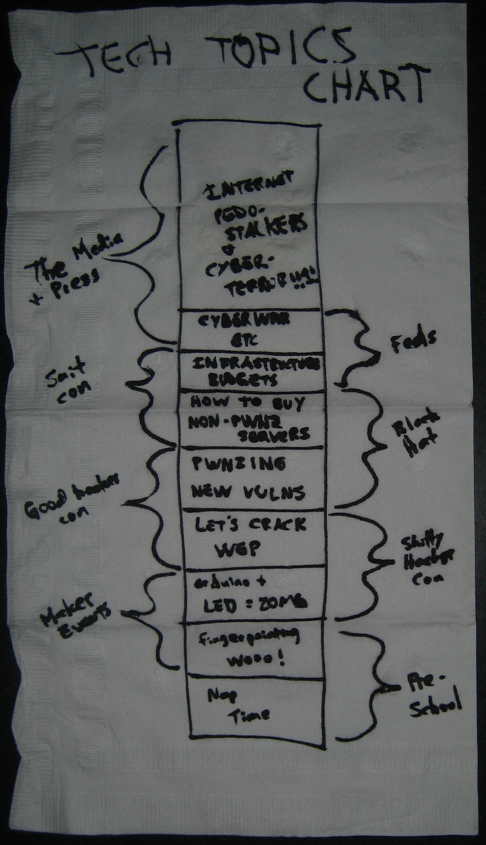 TECH TOPICS
CHART
INTERNET
PEDO-
STALKERS
&
CYBER-
TERROR!!!!
The Media
+ Press
CYBERWAR
ETC
Feds
INFRASTRUCTURE
BUDGETS
Suit
con
HOW TO BUY
NON-PWNZ
SERVERS
Black
Hat
PWNZING
NEW VULNS
Good hacker
con
LET'S CRACK
WEP
Shitty
Hacker
Con
arduino +
LED = ZOMG
Maker
Events
fingerpainting
Wooo!
Pre-
School
Nap
Time